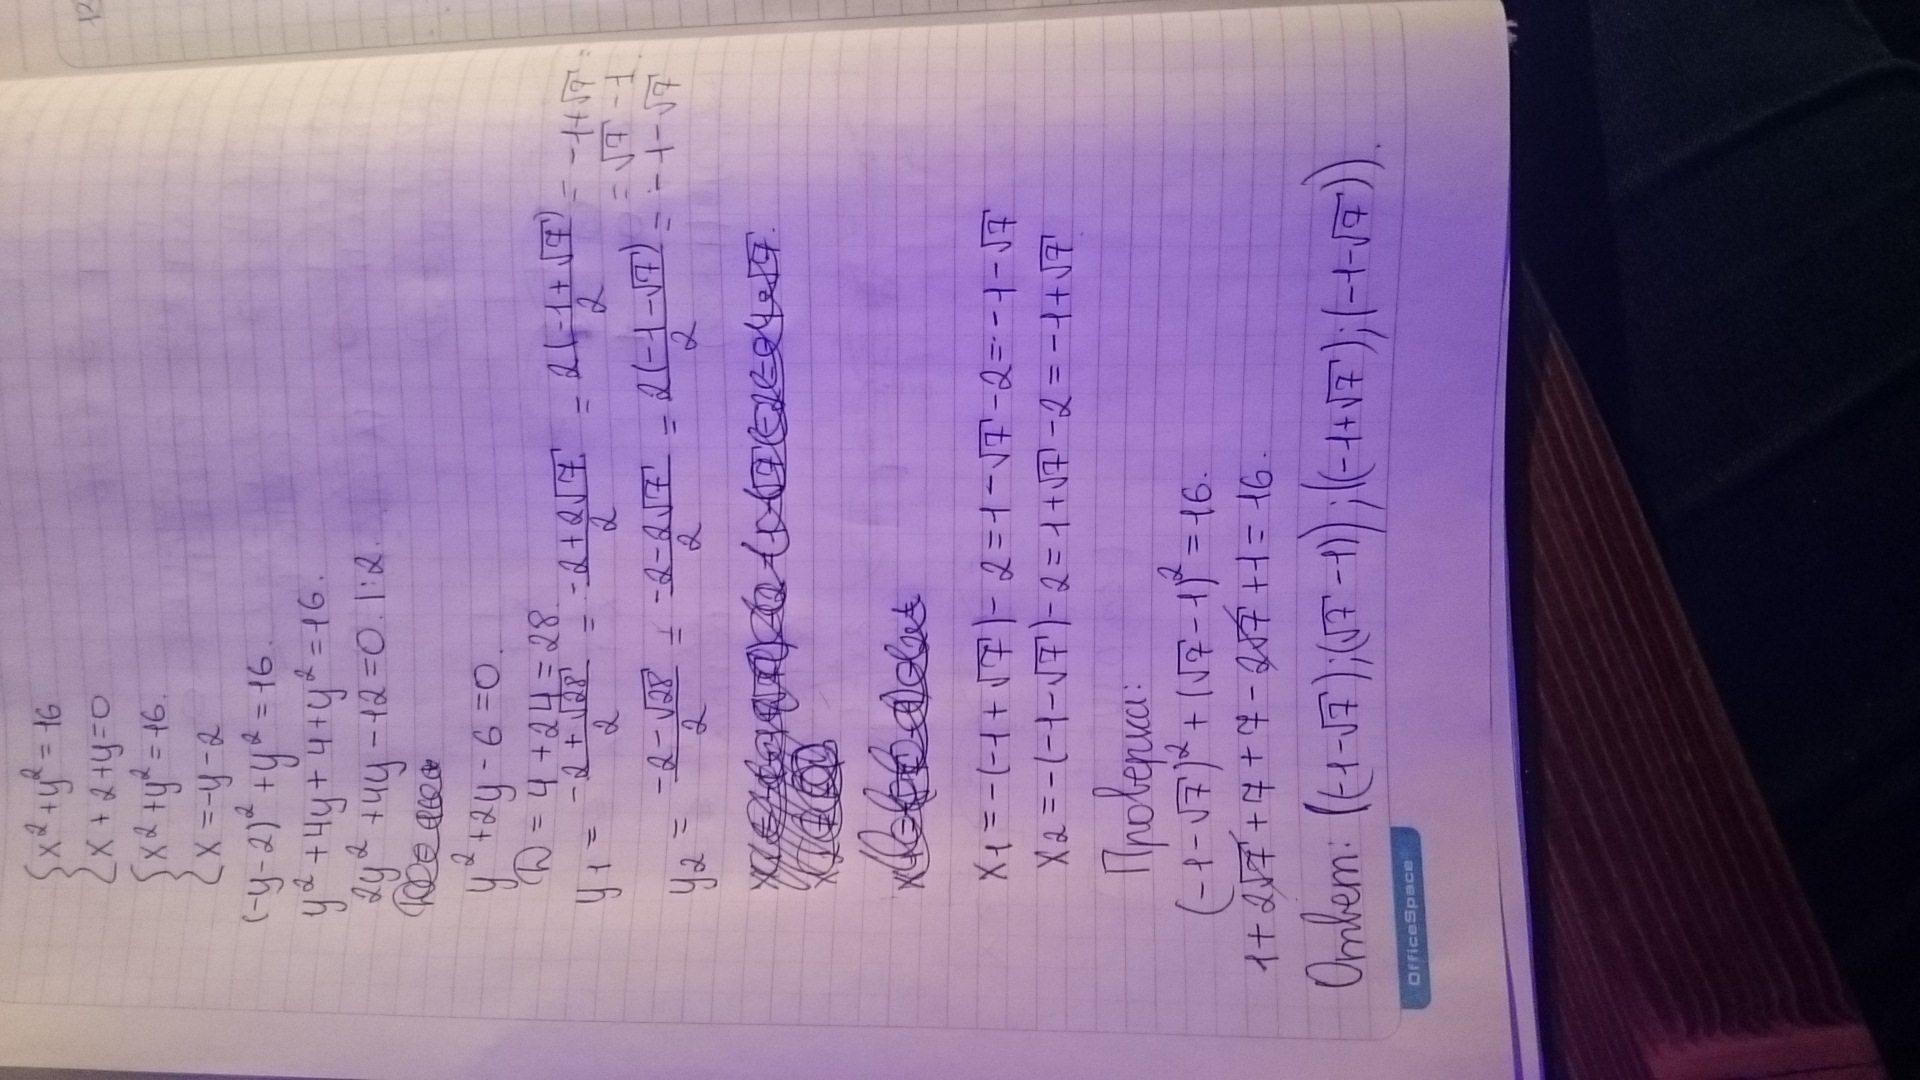 {x²+y²=16
{x+2+y=0
{x²+y²=16.
{x=-y-2
(-y-2)²+y²=16.
y²+4y+4+y²=16.
2y²+4y-12=0. |:2.
y²+2y-6=0.
D=4+24=28.
y1 = (-2+√28)/2 = (-2+2√7)/2 = 2(-1+√7)/2 = -1+√7 =
= √7-1.
y2 = (-2-√28)/2 = (-2-2√7)/2 = 2(-1-√7)/2 = -1-√7
x1=-(-1+√7)-2=1-√7-2=-1-√7
x2=-(-1-√7)-2=1+√7-2=-1+√7.
Проверка:
(-1-√7)²+(√7-1)²=16.
1+2√7+7+7-2√7+1=16.
Ответ: ((-1-√7);(√7-1));(-1+√7);(-1-√7)).
OfficeSpace